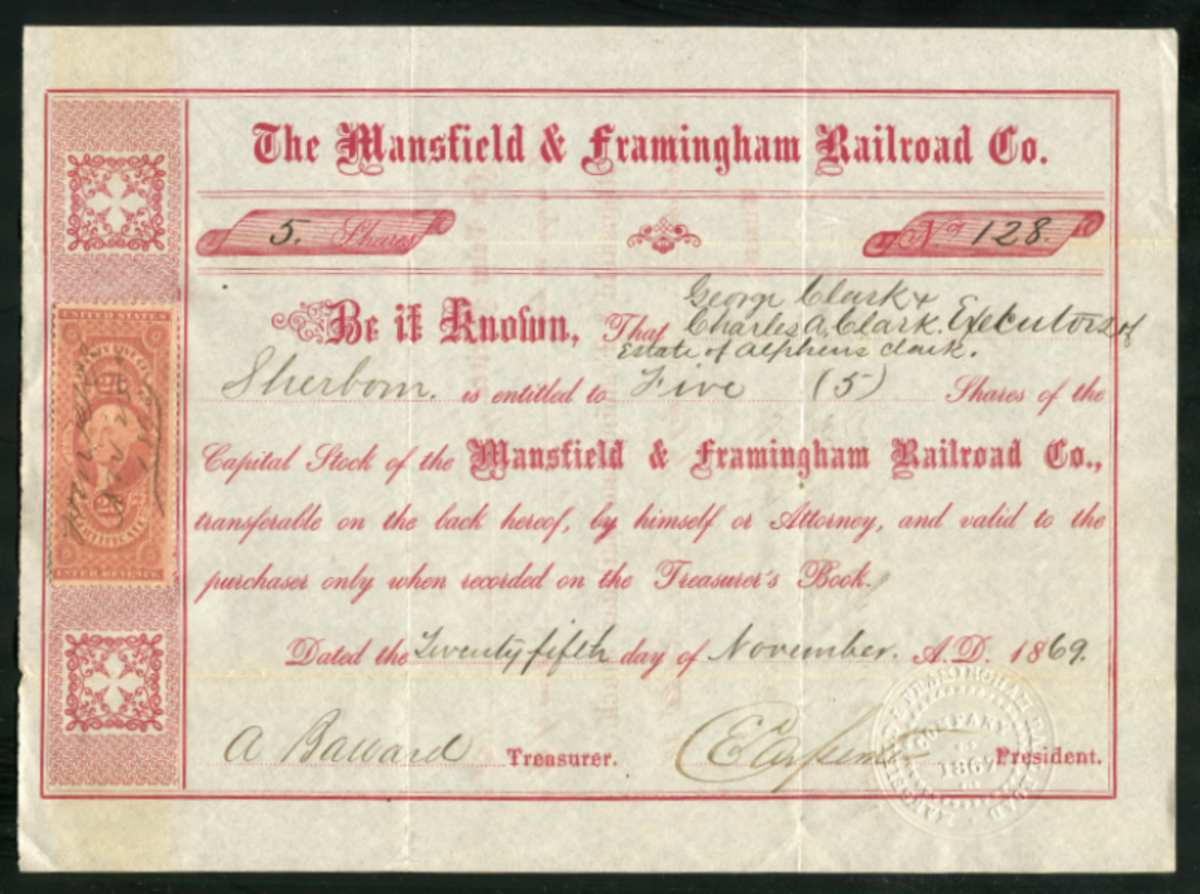 The Mansfield & Framingham Railroad Co.
5. Shares
No 128.
George Clark &
Be it Known, That Charles A. Clark. Executors of
Estate of Alpheus Clark.
Sherborn. is entitled to Five (5) Shares of the
Capital Stock of the Mansfield & Framingham Railroad Co.,
transferable on the back hereof, by himself or Attorney, and valid to the
purchaser only when recorded on the Treasurer's Book.
Dated the Twenty fifth day of November. A.D. 1869.
A Treasurer. President.
UNITED STATES
CERTIFICATE
INTER. REVENUE
FRAMINGHAM RAILROAD
COMPANY